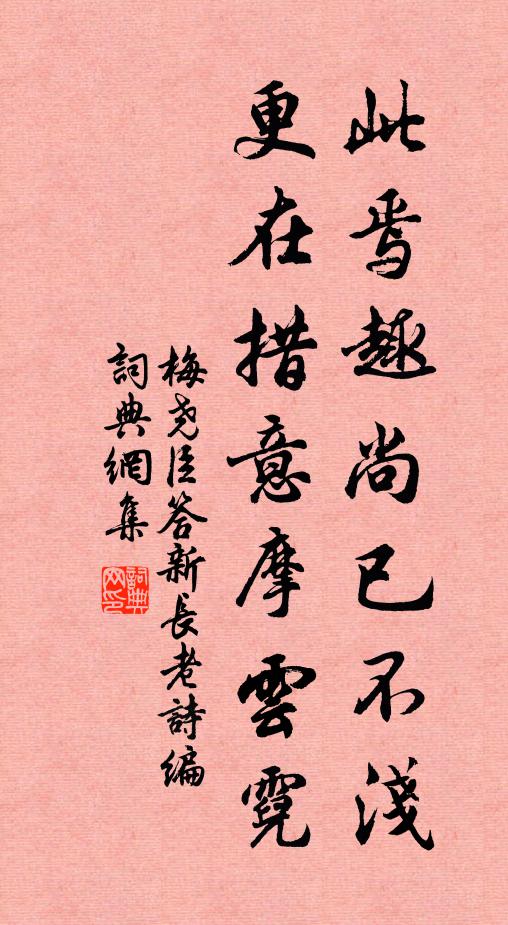 此焉趣尚已不淺
更在措意摩雲霓
梅尧臣答新長老詩編
詞典網集
詞典网印